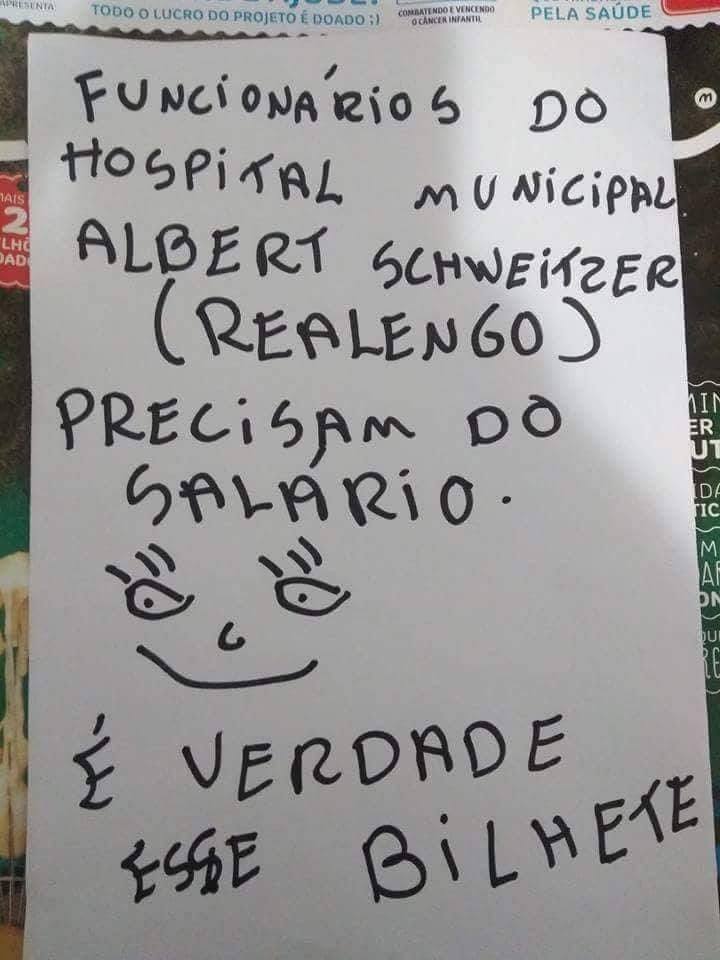 APRESENTA
TODO O LUCRO DO PROJETO É DOADO ;)
COMBATENDO E VENCENDO
O CÂNCER INFANTIL
PELA SAÚDE
FUNCIONÁRIOS DO
HOSPITAL MUNICIPAL
ALBERT SCHWEITZER
(REALENGO)
PRECISAM DO
SALÁRIO.
É VERDADE
ESSE BILHETE
MAIS
2